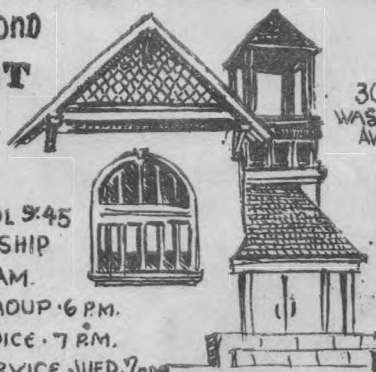 OND
T
30
WAS
AV
OL 9:45
SHIP
AM.
ROUP · 6 P.M.
OICE · 7 P.M.
RVICE · WED. 7PM